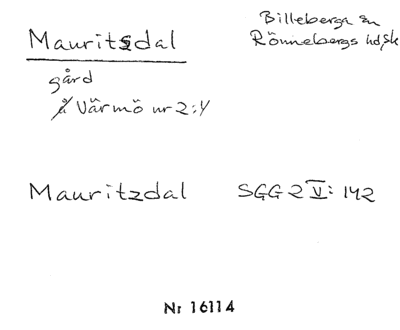 Mauritsdal
Billeberga sn
Rönnebergs hd, Sk
gård
å Värmö nr 2:4
Mauritzdal SGG 2 V: 142
Nr 16114